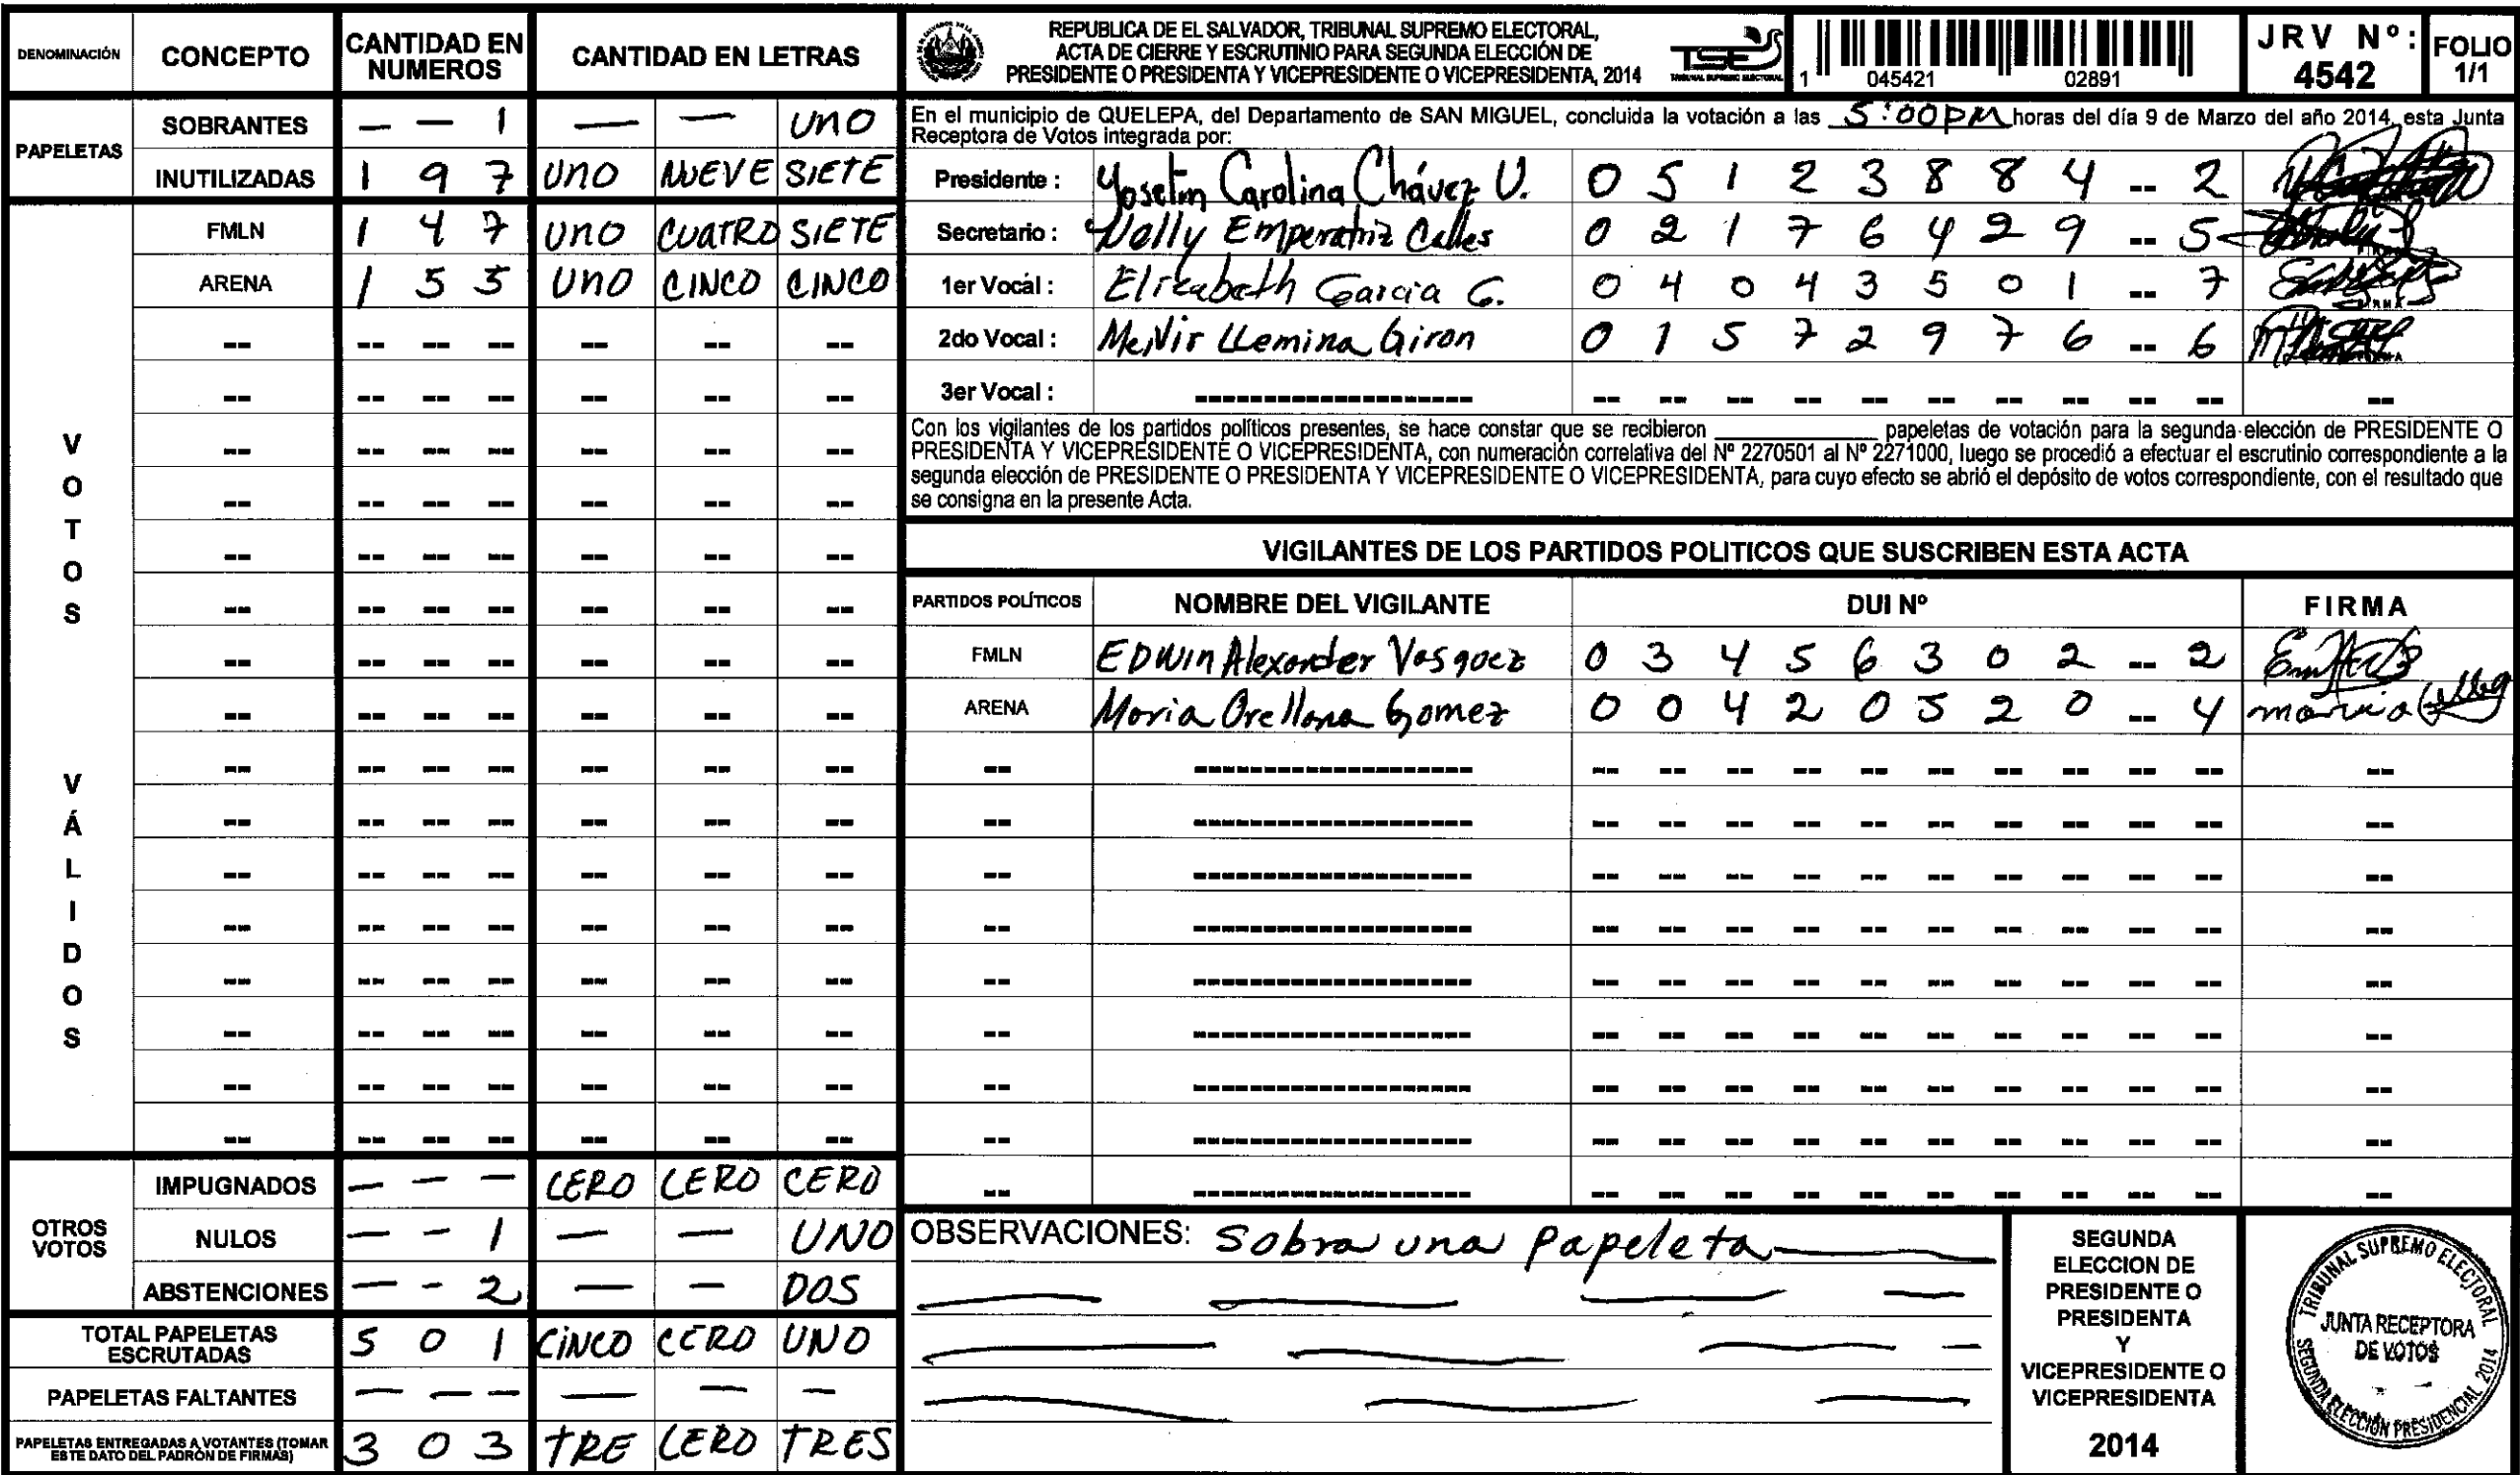 DENOMINACIÓN CONCEPTO CANTIDAD EN NUMEROS CANTIDAD EN LETRAS
PAPELETAS
SOBRANTES — — 1 — — UNO
INUTILIZADAS 1 9 7 UNO NUEVE SIETE
VOTOS VÁLIDOS
FMLN 1 4 7 UNO CUATRO SIETE
ARENA 1 5 5 UNO CINCO CINCO
OTROS VOTOS
IMPUGNADOS — — — CERO CERO CERO
NULOS — — 1 — — UNO
ABSTENCIONES — - 2 — — DOS
TOTAL PAPELETAS ESCRUTADAS 5 0 1 CINCO CERO UNO
PAPELETAS FALTANTES — — — — — —
PAPELETAS ENTREGADAS A VOTANTES (TOMAR ESTE DATO DEL PADRÓN DE FIRMAS) 3 0 3 TRE CERO TRES
REPUBLICA DE EL SALVADOR, TRIBUNAL SUPREMO ELECTORAL,
ACTA DE CIERRE Y ESCRUTINIO PARA SEGUNDA ELECCIÓN DE
PRESIDENTE O PRESIDENTA Y VICEPRESIDENTE O VICEPRESIDENTA, 2014
TSE
TRIBUNAL SUPREMO ELECTORAL
1 045421 02891
JRV Nº: 4542
FOLIO 1/1
En el municipio de QUELEPA, del Departamento de SAN MIGUEL, concluida la votación a las 5:00 PM horas del día 9 de Marzo del año 2014, esta Junta
Receptora de Votos integrada por:
Presidente : Yoselin Carolina Chávez U. 0 5 1 2 3 8 8 4 -- 2
Secretario : Nelly Emperatriz Calles 0 2 1 7 6 4 2 9 -- 5
1er Vocal : Elizabeth Garcia G. 0 4 0 4 3 5 0 1 -- 7
2do Vocal : Giron 0 1 5 7 2 9 7 6 -- 6
3er Vocal :
Con los vigilantes de los partidos políticos presentes, se hace constar que se recibieron ____________ papeletas de votación para la segunda elección de PRESIDENTE O
PRESIDENTA Y VICEPRESIDENTE O VICEPRESIDENTA, con numeración correlativa del Nº 2270501 al Nº 2271000, luego se procedió a efectuar el escrutinio correspondiente a la
segunda elección de PRESIDENTE O PRESIDENTA Y VICEPRESIDENTE O VICEPRESIDENTA, para cuyo efecto se abrió el depósito de votos correspondiente, con el resultado que
se consigna en la presente Acta.
VIGILANTES DE LOS PARTIDOS POLITICOS QUE SUSCRIBEN ESTA ACTA
PARTIDOS POLÍTICOS NOMBRE DEL VIGILANTE DUI Nº FIRMA
FMLN EDWIN Alexander Vasquez 0 3 4 5 6 3 0 2 -- 2
ARENA Maria Orellana Gomez 0 0 4 2 0 5 2 0 -- 4 maria
OBSERVACIONES: Sobra una Papeleta
SEGUNDA
ELECCION DE
PRESIDENTE O
PRESIDENTA
Y
VICEPRESIDENTE O
VICEPRESIDENTA
2014
TRIBUNAL SUPREMO ELECTORAL
JUNTA RECEPTORA
DE VOTOS
SEGUNDA ELECCIÓN PRESIDENCIAL 2014